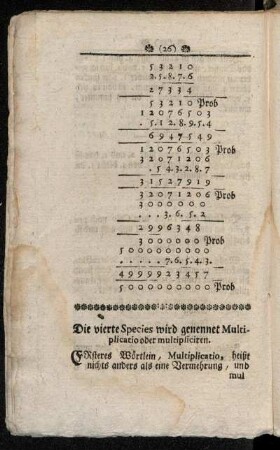 (26)
5 3 2 1 0
2. 5. 8. 7. 6
2 7 3 3 4
5 3 2 1 0 Prob
1 2 0 7 6 5 0 3
. 5. 1 2. 8. 9. 5. 4
6 9 4 7 5 4 9
1 2 0 7 6 5 0 3 Prob
3 2 0 7 1 2 0 6
. 5 4. 3. 2. 8. 7
3 1 5 2 7 9 1 9
3 2 0 7 1 2 0 6 Prob
3 0 0 0 0 0 0
. . . 3. 6. 5. 2
2 9 9 6 3 4 8
3 0 0 0 0 0 0 Prob
5 0 0 0 0 0 0 0 0 0
. . . . . 7 6. 5. 4. 3
4 9 9 9 9 2 3 4 5 7
5 0 0 0 0 0 0 0 0 0 Prob
Die vierte Species wird genennet Multi-
plicatio oder multipliciren.
ERsteres Wörtlein, Multiplicatio, heißt
nichts anders als eine Vermehrung, und
mul